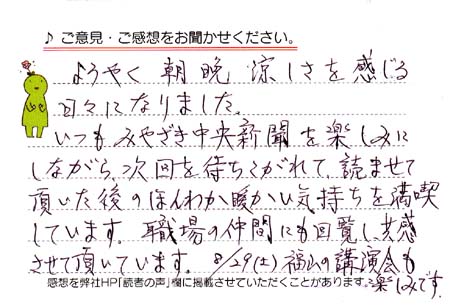 ♪ ご意見・ご感想をお聞かせください。
ようやく朝晩涼しさを感じる
日々になりました。
いつもみやざき中央新聞を楽しみに
しながら、次回を待ちこがれて、読ませて
頂いた後のほんわか暖かい気持ちを満喫
しています。職場の仲間にも回覧し、共感
させて頂いています。8/29(土)福山の講演会も
感想を弊社HP「読者の声」欄に掲載させていただくことがあります。楽しみです。